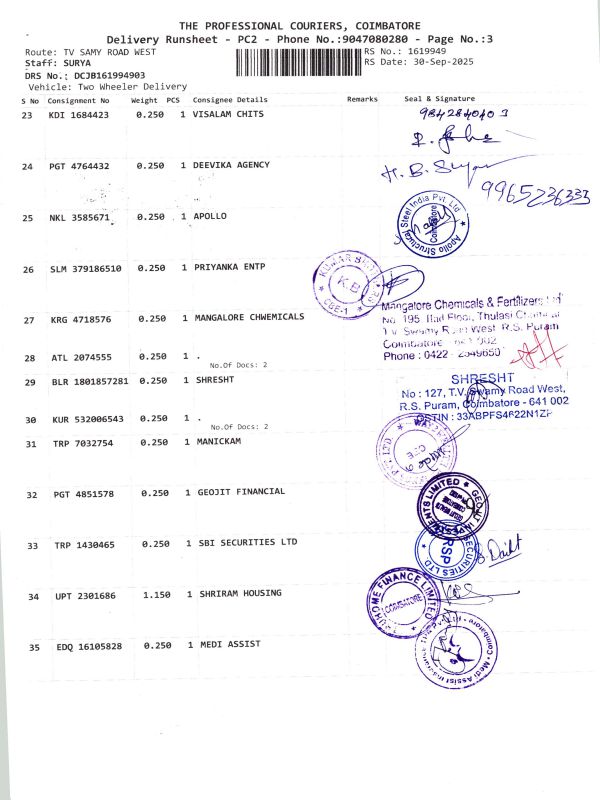 THE PROFESSIONAL COURIERS, COIMBATORE
Delivery Runsheet - PC2 - Phone No.:9047080280 - Page No.:3
Route: TV SAMY ROAD WEST
RS No.: 1619949
Staff: SURYA
RS Date: 30-Sep-2025
DRS No.: DCJB161994903
Vehicle: Two Wheeler Delivery
S No Consignment No Weight PCS Consignee Details Remarks Seal & Signature
23 KDI 1684423 0.250 1 VISALAM CHITS
24 PGT 4764432 0.250 1 DEEVIKA AGENCY
9965236333
25 NKL 3585671 0.250 1 APOLLO
Apollo Structural Steel India Pvt. Ltd
Coimbatore
26 SLM 379186510 0.250 1 PRIYANKA ENTP
K.B
CBE-1
27 KRG 4718576 0.250 1 MANGALORE CHWEMICALS
Mangalore Chemicals & Fertilizers Ltd
No. 195, Floor, Thulasi
Swamy Road West, R.S. Puram
Coimbatore 002
Phone : 0422 - 2549650
28 ATL 2074555 0.250 1 .
No.Of Docs: 2
29 BLR 1801857281 0.250 1 SHRESHT
SHRESHT
No : 127, T.V. Swamy Road West,
R.S. Puram, Coimbatore - 641 002
GSTIN : 33ABPFS4622N1ZP
30 KUR 532006543 0.250 1 .
No.Of Docs: 2
31 TRP 7032754 0.250 1 MANICKAM
32 PGT 4851578 0.250 1 GEOJIT FINANCIAL
GEOJIT INVESTMENTS LIMITED
33 TRP 1430465 0.250 1 SBI SECURITIES LTD
SECURITIES LTD.
RSP
34 UPT 2301686 1.150 1 SHRIRAM HOUSING
HOME FINANCE LIMITED
COIMBATORE
35 EDQ 16105828 0.250 1 MEDI ASSIST
Medi Assist
Coimbatore